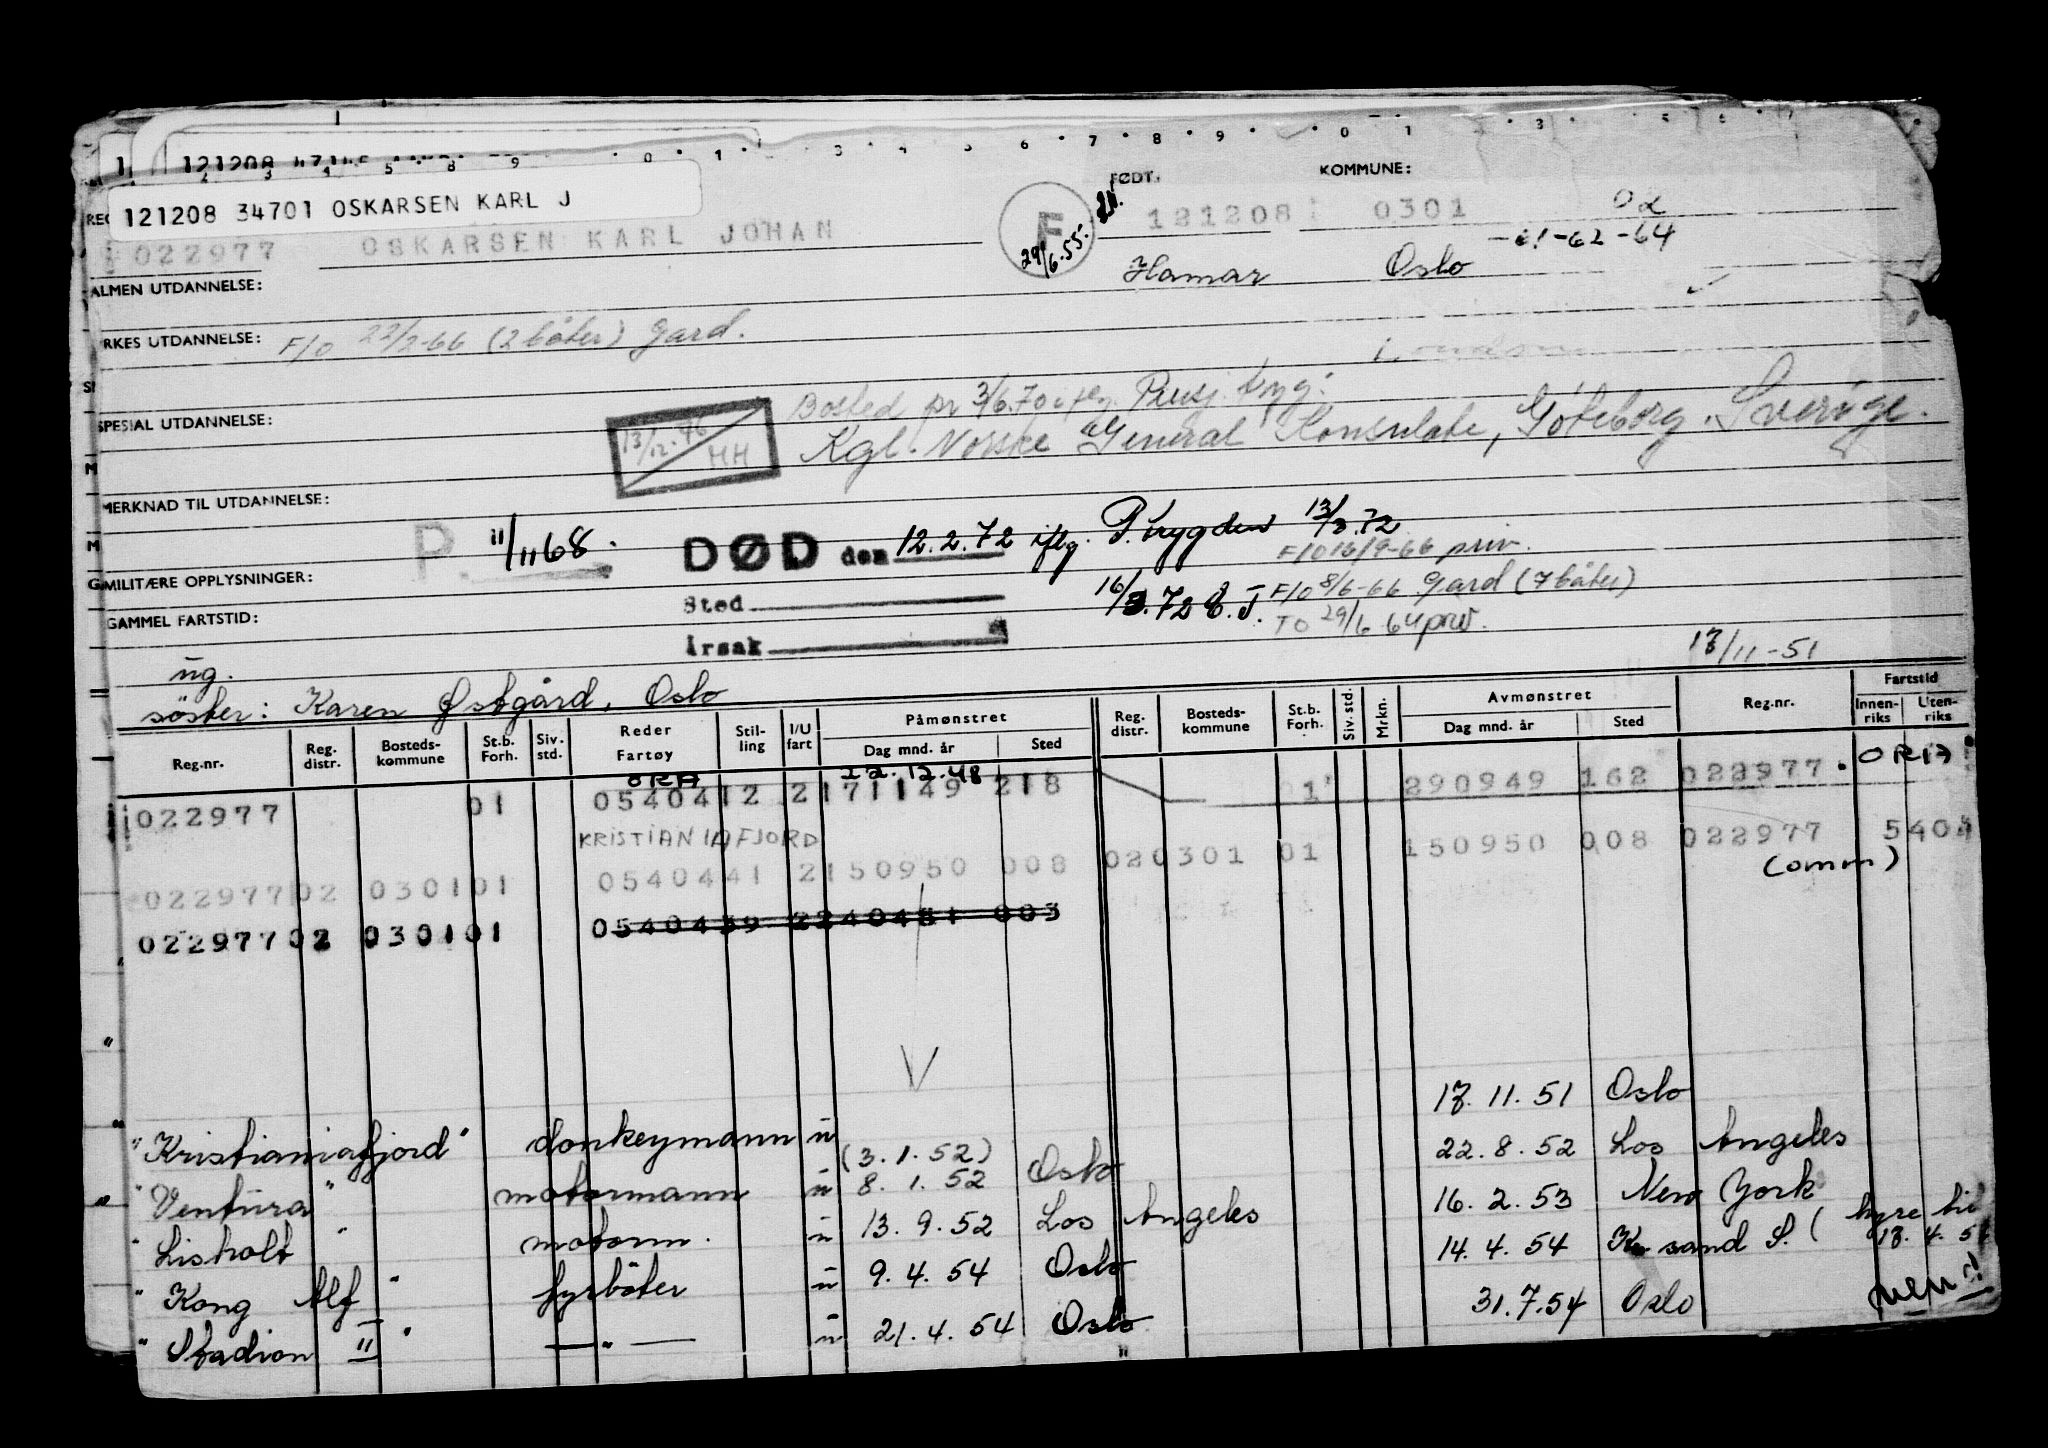 121208
FØDT.
KOMMUNE:
121208 34701 OSKARSEN KARL J
022977 OSKARSEN KARL JOHAN
F
29/6.55.
121208 0301 02
-61-62-64
Hamar Oslo
ALMEN UTDANNELSE:
RKES UTDANNELSE: F/O 22/2-66 (2 båter) Gard.
SPESIAL UTDANNELSE:
Bosted pr 3/6.70 iflg. Pensj. tryg:
13/12.46 HH
Kgl. Norske General Konsulate, Göteborg. Sverige.
MERKNAD TIL UTDANNELSE:
P. 11/11 68.
DØD den 12.2.72 iflg. P.trygden 13/3.72
F/O 16/9-66 priv.
MILITÆRE OPPLYSNINGER:
Sted
16/3.72 E.J. F/O 8/6-66 Gard (7 båter)
GAMMEL FARTSTID:
TO 29/6 64 priv.
Årsak
ug.
13/11-51
søster: Karen Østgård, Oslo
Reg.nr. Reg. distr. Bosteds-kommune St.b. Forh. Siv. std. Reder Fartøy Stil-ling I/U fart Påmønstret Dag mnd. år Sted Reg. distr. Bosteds-kommune St.b. Forh. Siv. std. Mrkn. Avmønstret Dag mnd. år Sted Reg.nr. Fartstid Innen-riks Uten-riks
ORA 22.12.48 ORIA
022977 01 0540412 2171149 218 01 290949 162 022977
KRISTIANIAFJORD
022977 02 0301 01 0540441 2150950 008 02 0301 01 150950 008 022977 5404
(omm)
022977 02 0301 01 0540439 2240451 003
"Kristianiafjord" donkeymann u 13.11.51 Oslo
(3.1.52)
"Ventura" motormann u 8.1.52 Oslo 22.8.52 Los Angeles
"Lisholt" motorm. u 13.9.52 Los Angeles 16.2.53 New York
"Kong Alf" fyrbøter u 9.4.54 Oslo 14.4.54 Kr.sand S. (hyre til 17.4.54
"Stadion II" — " — u 21.4.54 Oslo 31.7.54 Oslo